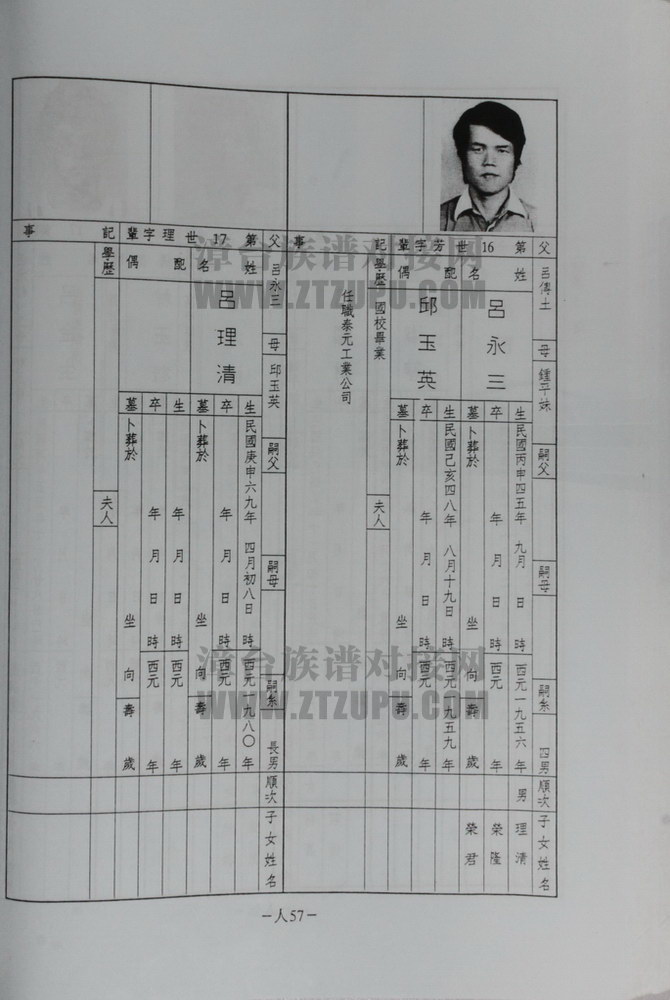 父 呂傳土 母 鍾平妹 嗣父 嗣母 嗣系 四男 順次 子女姓名
第16世芳字輩
姓名 呂永三
生 民國丙申四五年 九月 日 時 西元一九五六年 男 理清
卒 年 月 日 時 西元 年 榮隆
墓 卜葬於 坐 向 壽 歲 榮君
配偶 邱玉英
生 民國己亥四八年 八月十九日 時 西元一九五九年
卒 年 月 日 時 西元 年
墓 卜葬於 坐 向 壽 歲
記事
學歷 國校畢業 夫人
任職泰元工業公司
父 呂永三 母 邱玉英 嗣父 嗣母 嗣系 長男 順次 子女姓名
第17世理字輩
姓名 呂理清
生 民國庚申六九年 四月初八日 時 西元一九八〇年
卒 年 月 日 時 西元 年
墓 卜葬於 坐 向 壽 歲
配偶
生 年 月 日 時 西元 年
卒 年 月 日 時 西元 年
墓 卜葬於 坐 向 壽 歲
記事
學歷 夫人
－人57－
漳台族谱对接网
WWW.ZTZUPU.COM
漳台族谱对接网
WWW.ZTZUPU.COM